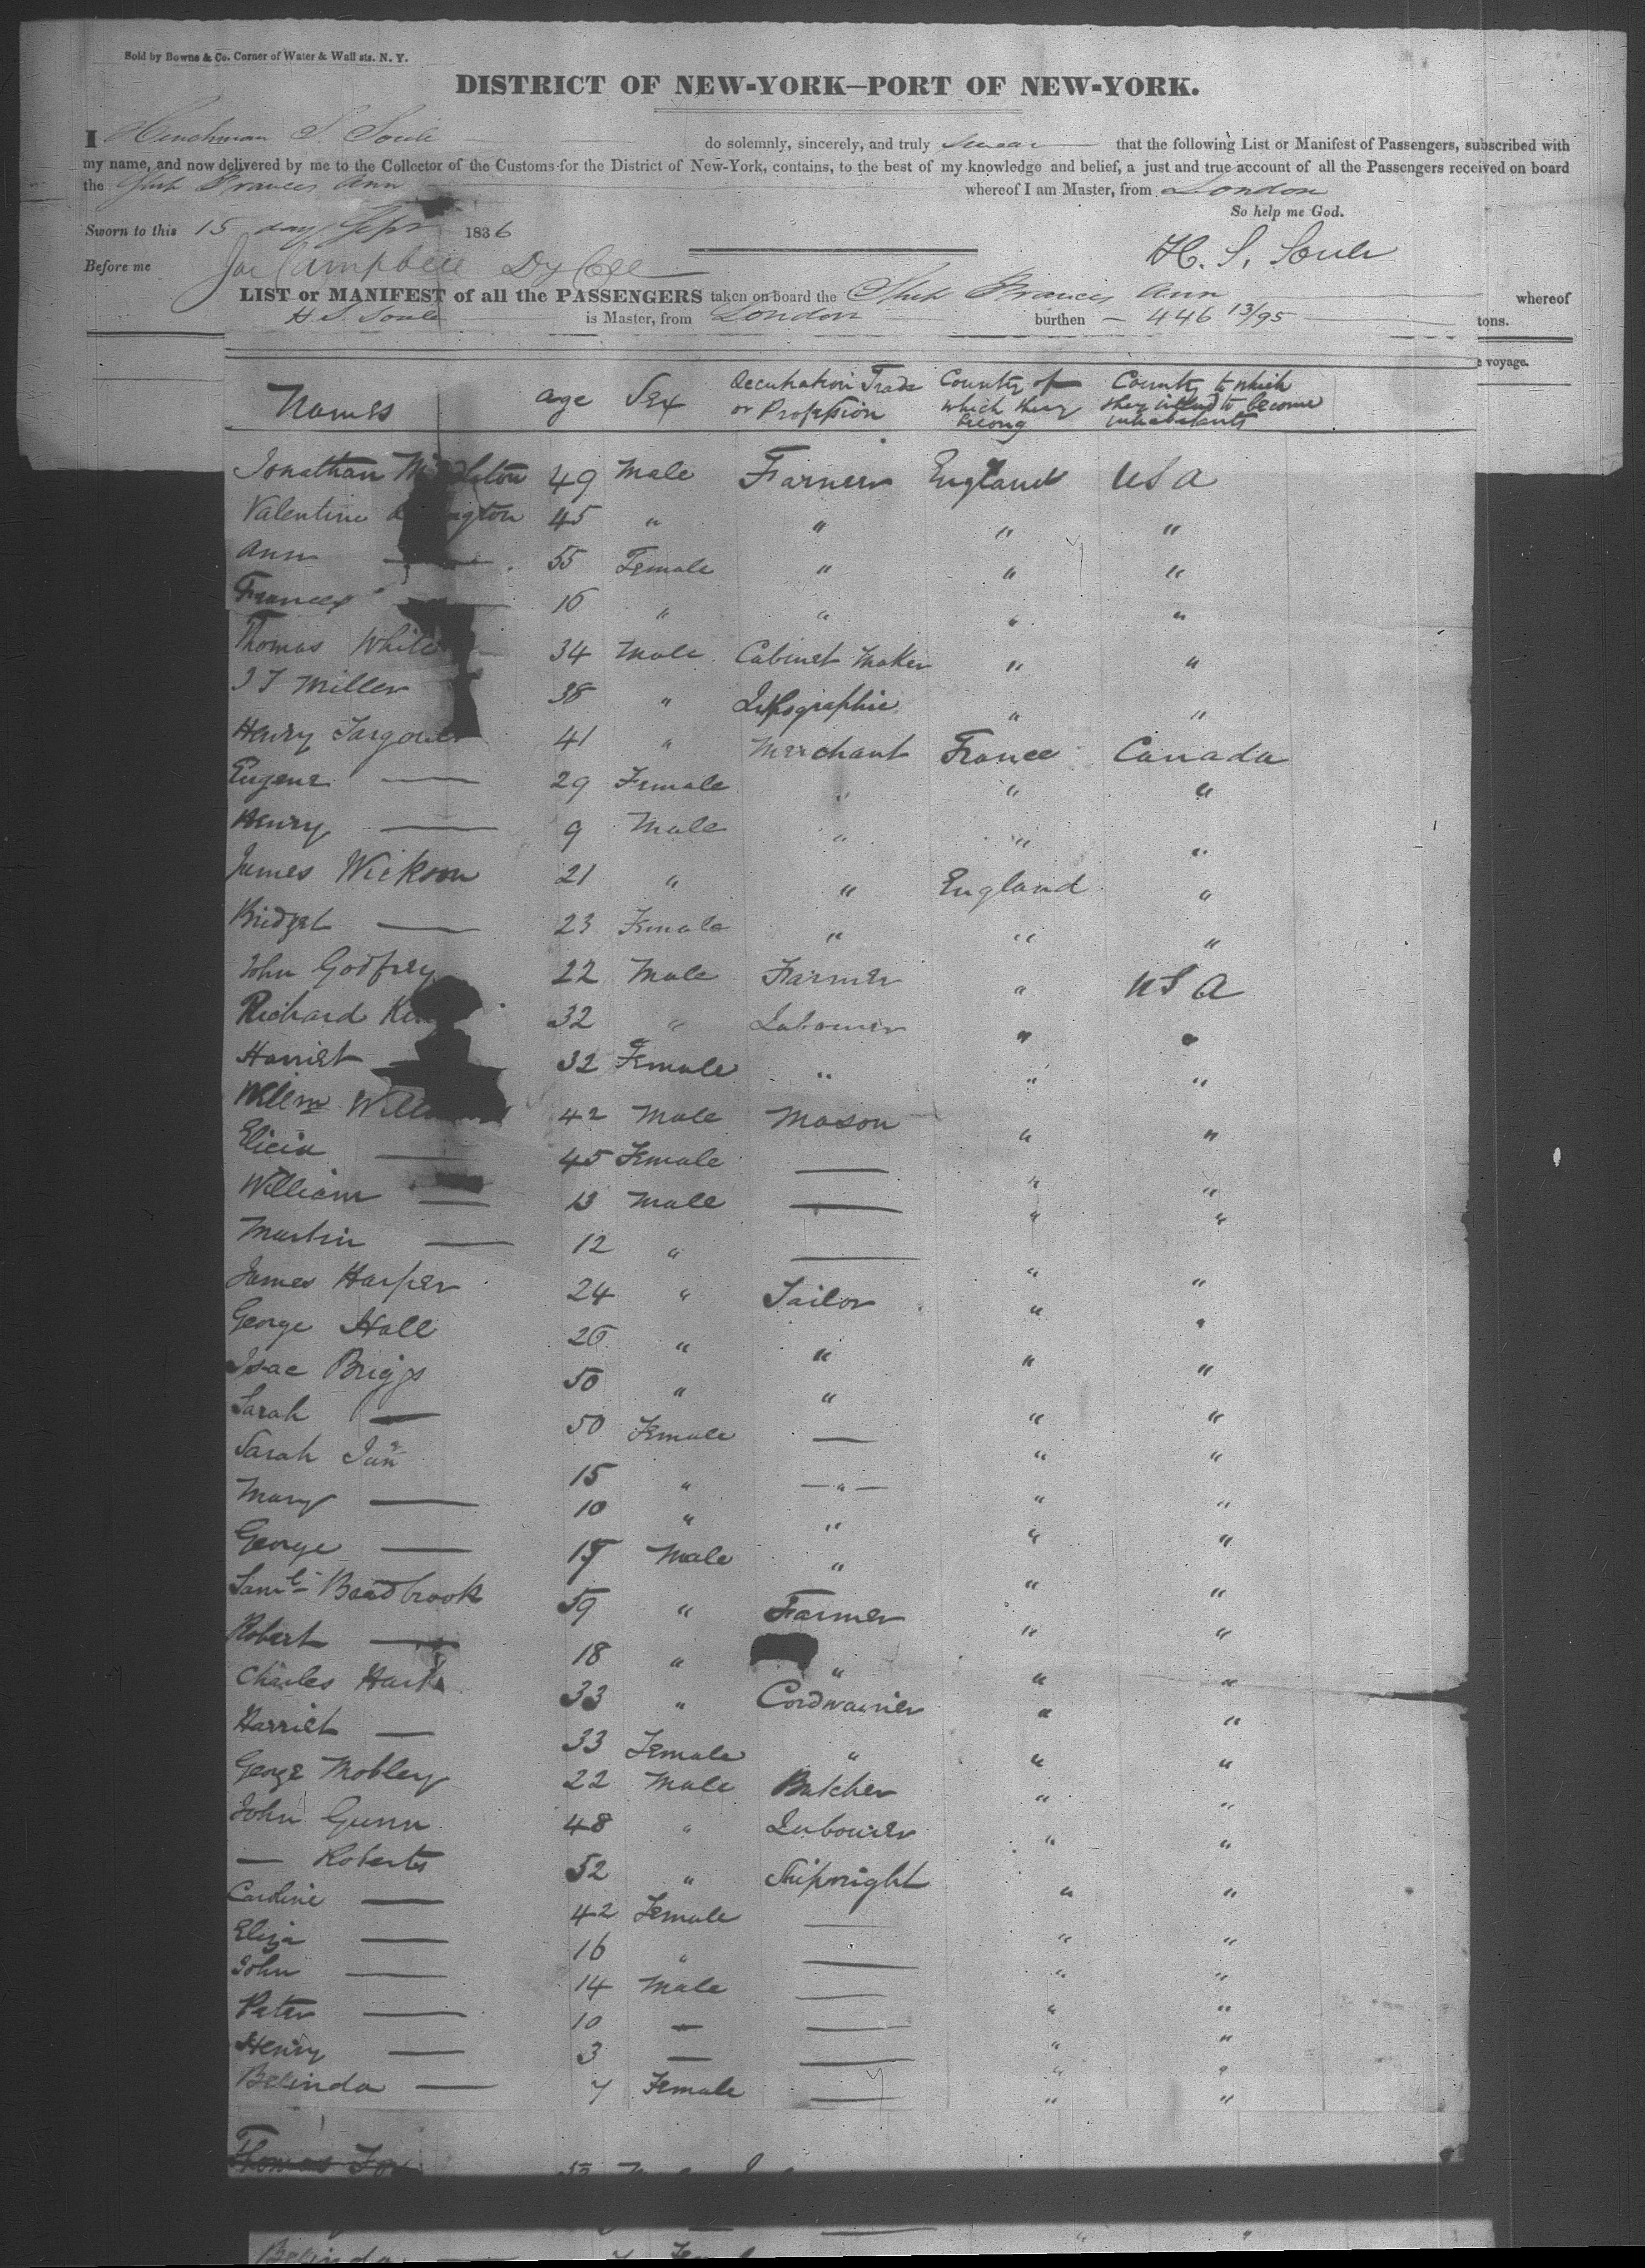 Sold by Bowne & Co. Corner of Water & Wall sts. N. Y.
DISTRICT OF NEW-YORK—PORT OF NEW-YORK.
I Henchman S. Soule do solemnly, sincerely, and truly swear that the following List or Manifest of Passengers, subscribed with
my name, and now delivered by me to the Collector of the Customs for the District of New-York, contains, to the best of my knowledge and belief, a just and true account of all the Passengers received on board
the Ship Frances Ann whereof I am Master, from London
So help me God.
Sworn to this 15 day Sepr 1836
H. S. Soule
Before me Campbell Dy Coll
LIST or MANIFEST of all the PASSENGERS taken on board the Ship Frances Ann whereof
H. S. Soule is Master, from London burthen — 446 13/95 tons.
e voyage.
Names age Sex Occupation Trade or Profession Country of which they belong Country to which they intend to become inhabitants
Jonathan 49 Male Farmer England USA
Valentine 45 " " " "
Ann — 55 Female " " "
Frances — 16 " " " "
Thomas White 34 Male Cabinet Maker " "
J T Miller 38 " " "
Henry 41 " Merchant France Canada
Eugene — 29 Female " " "
Henry — 9 Male " " "
James Wickson 21 " " England "
Bridget — 23 Female " " "
John Godfrey 22 Male Farmer " USA
Richard 32 " Labourer " "
Harriet — 32 Female " " "
Willm 42 Male Mason " "
Elicia — 45 Female — " "
William — 13 Male — " "
Martin — 12 " — " "
James Harper 24 " Tailor " "
George Hall 26 " " " "
Isac Briggs 50 " " " "
Sarah — 50 Female — " "
Sarah Jane 15 " —"— " "
Mary — 10 " " " "
George — Male " " "
Saml Boadbrook 59 " Farmer " "
Robert — 18 " " " "
Charles Hart 33 " Cordwainer " "
Harriet — 33 Female " " "
George Mobley 22 Male Butcher " "
John Gunn 48 " Labourer " "
— Roberts 52 " Shipwright " "
Caroline — 42 Female — " "
Eliza — 16 " — " "
John — 14 Male — " "
Peter — 10 — — " "
Henry — 3 — — " "
Belinda — 7 Female — " "
Thomas
Belinda